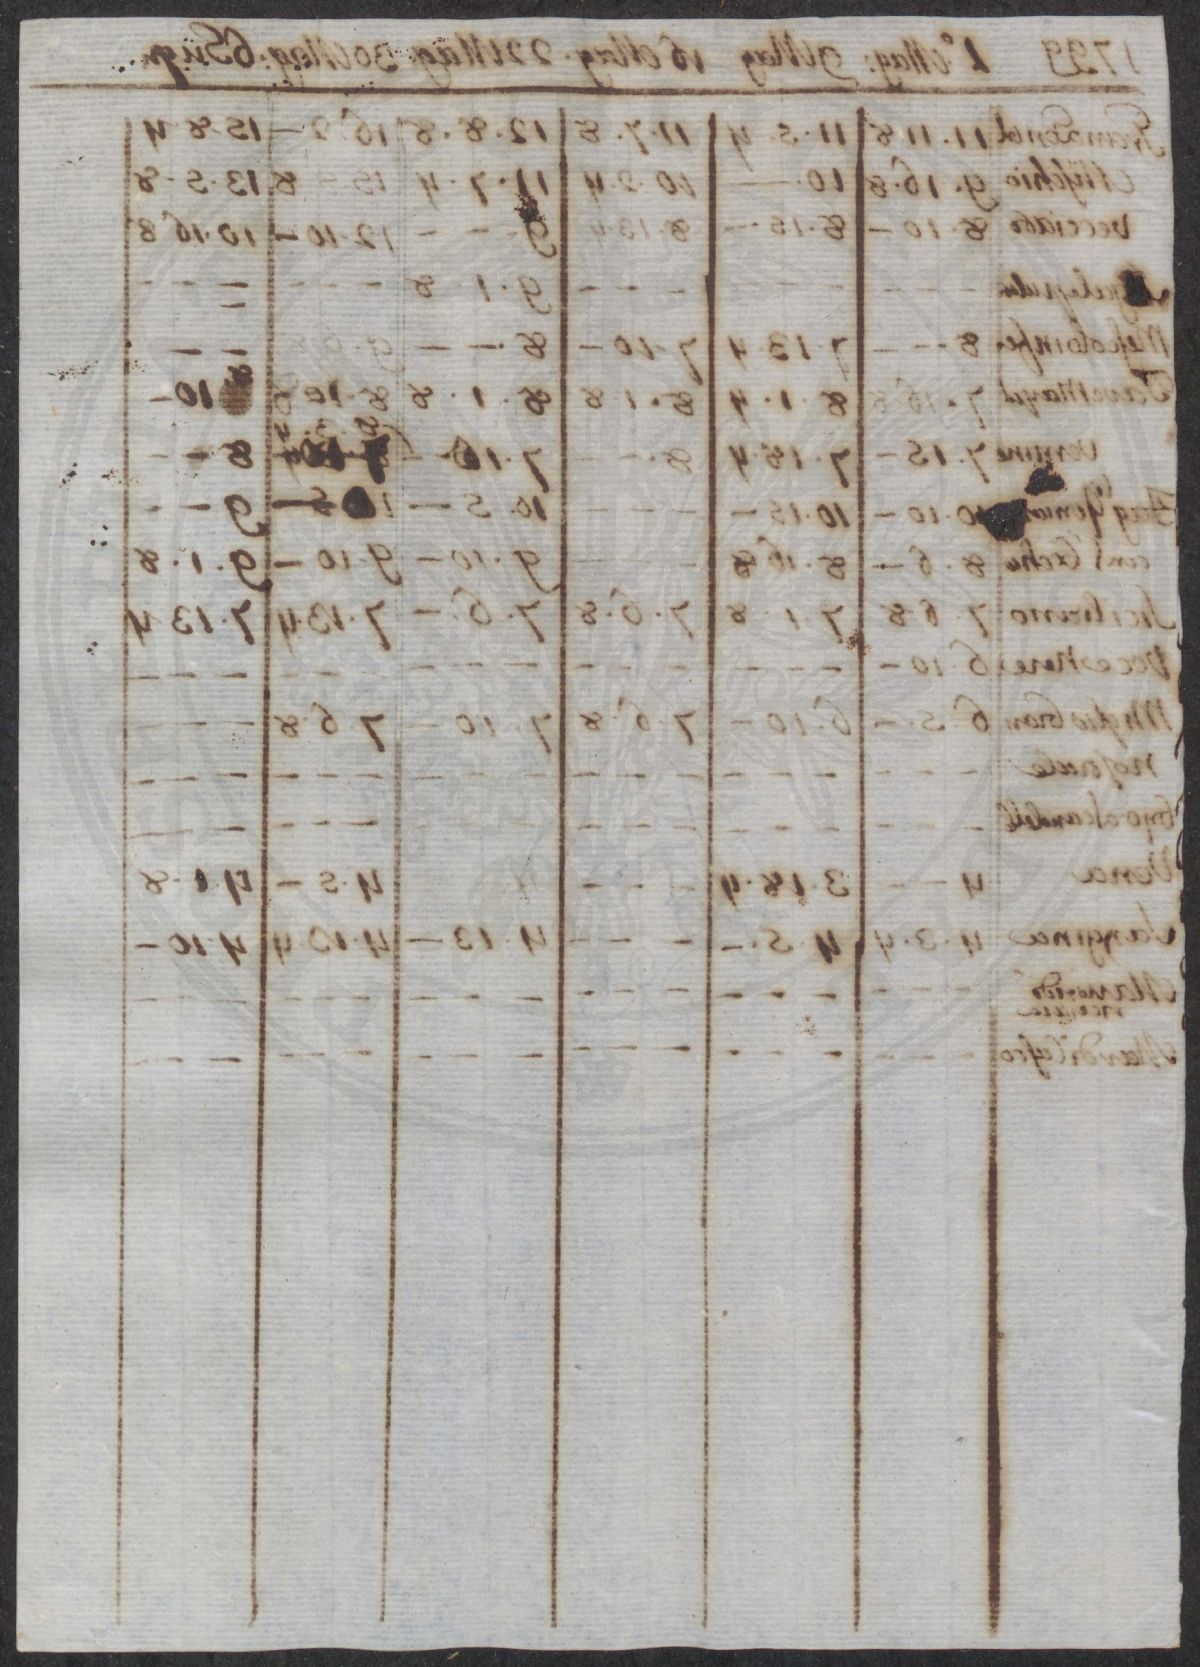 1799 2° Mag: 9 Mag 16 Mag. 22 Mag: 30 Mag: 6 Giug.
11.11.8 11.5.4 11.7.8 12.8.8 16.2.— 15.8.4
Mischio 9.16.8 10.— 10.2.4 11.7.4 15—8 13.5.8
Vecciato 8.10— 8.15.— 8.13.4 9 — — 12.10— 10.16.8
— — — — — — — — — 9.1.8 — — — — — —
8 — — 7.13.4 7.10— 8.— — 9.6.8 — —
7.16.8 8.1.4 8.1.8 8.1.8 8.10.8 8 10—
Vernine 7.15— 7.18.4 8.— — 7.10.— 8.3.4 8 — —
10.10— 10.15— — — — 10.5— 9 — —
8.6— 8.16.8 — — — 9.10— 9.10— 9.1.8
Siciliano 7.6.8 7.1.8 7.6.8 7.6.— 7.13.4 7.13.4
Veccie Nere 6.10— — — — — — — — — — — — — — —
Miglio 6.5— 6.10— 7.6.8 7.10— 7.6.8 — — —
Nostrale — — — — — — — — — — — — — — — — — —
— — — — — — — — — — — — — — — — — —
Vena 4 — — 3.18.4 — — — 4.5— 4.1.8
Saggina 4.3.4 4.5.— — — — 4.13— 4.13.4 4.10—
— — — — — — — — — — — — — — — — — —
— — — — — — — — — — — — — — — — — —